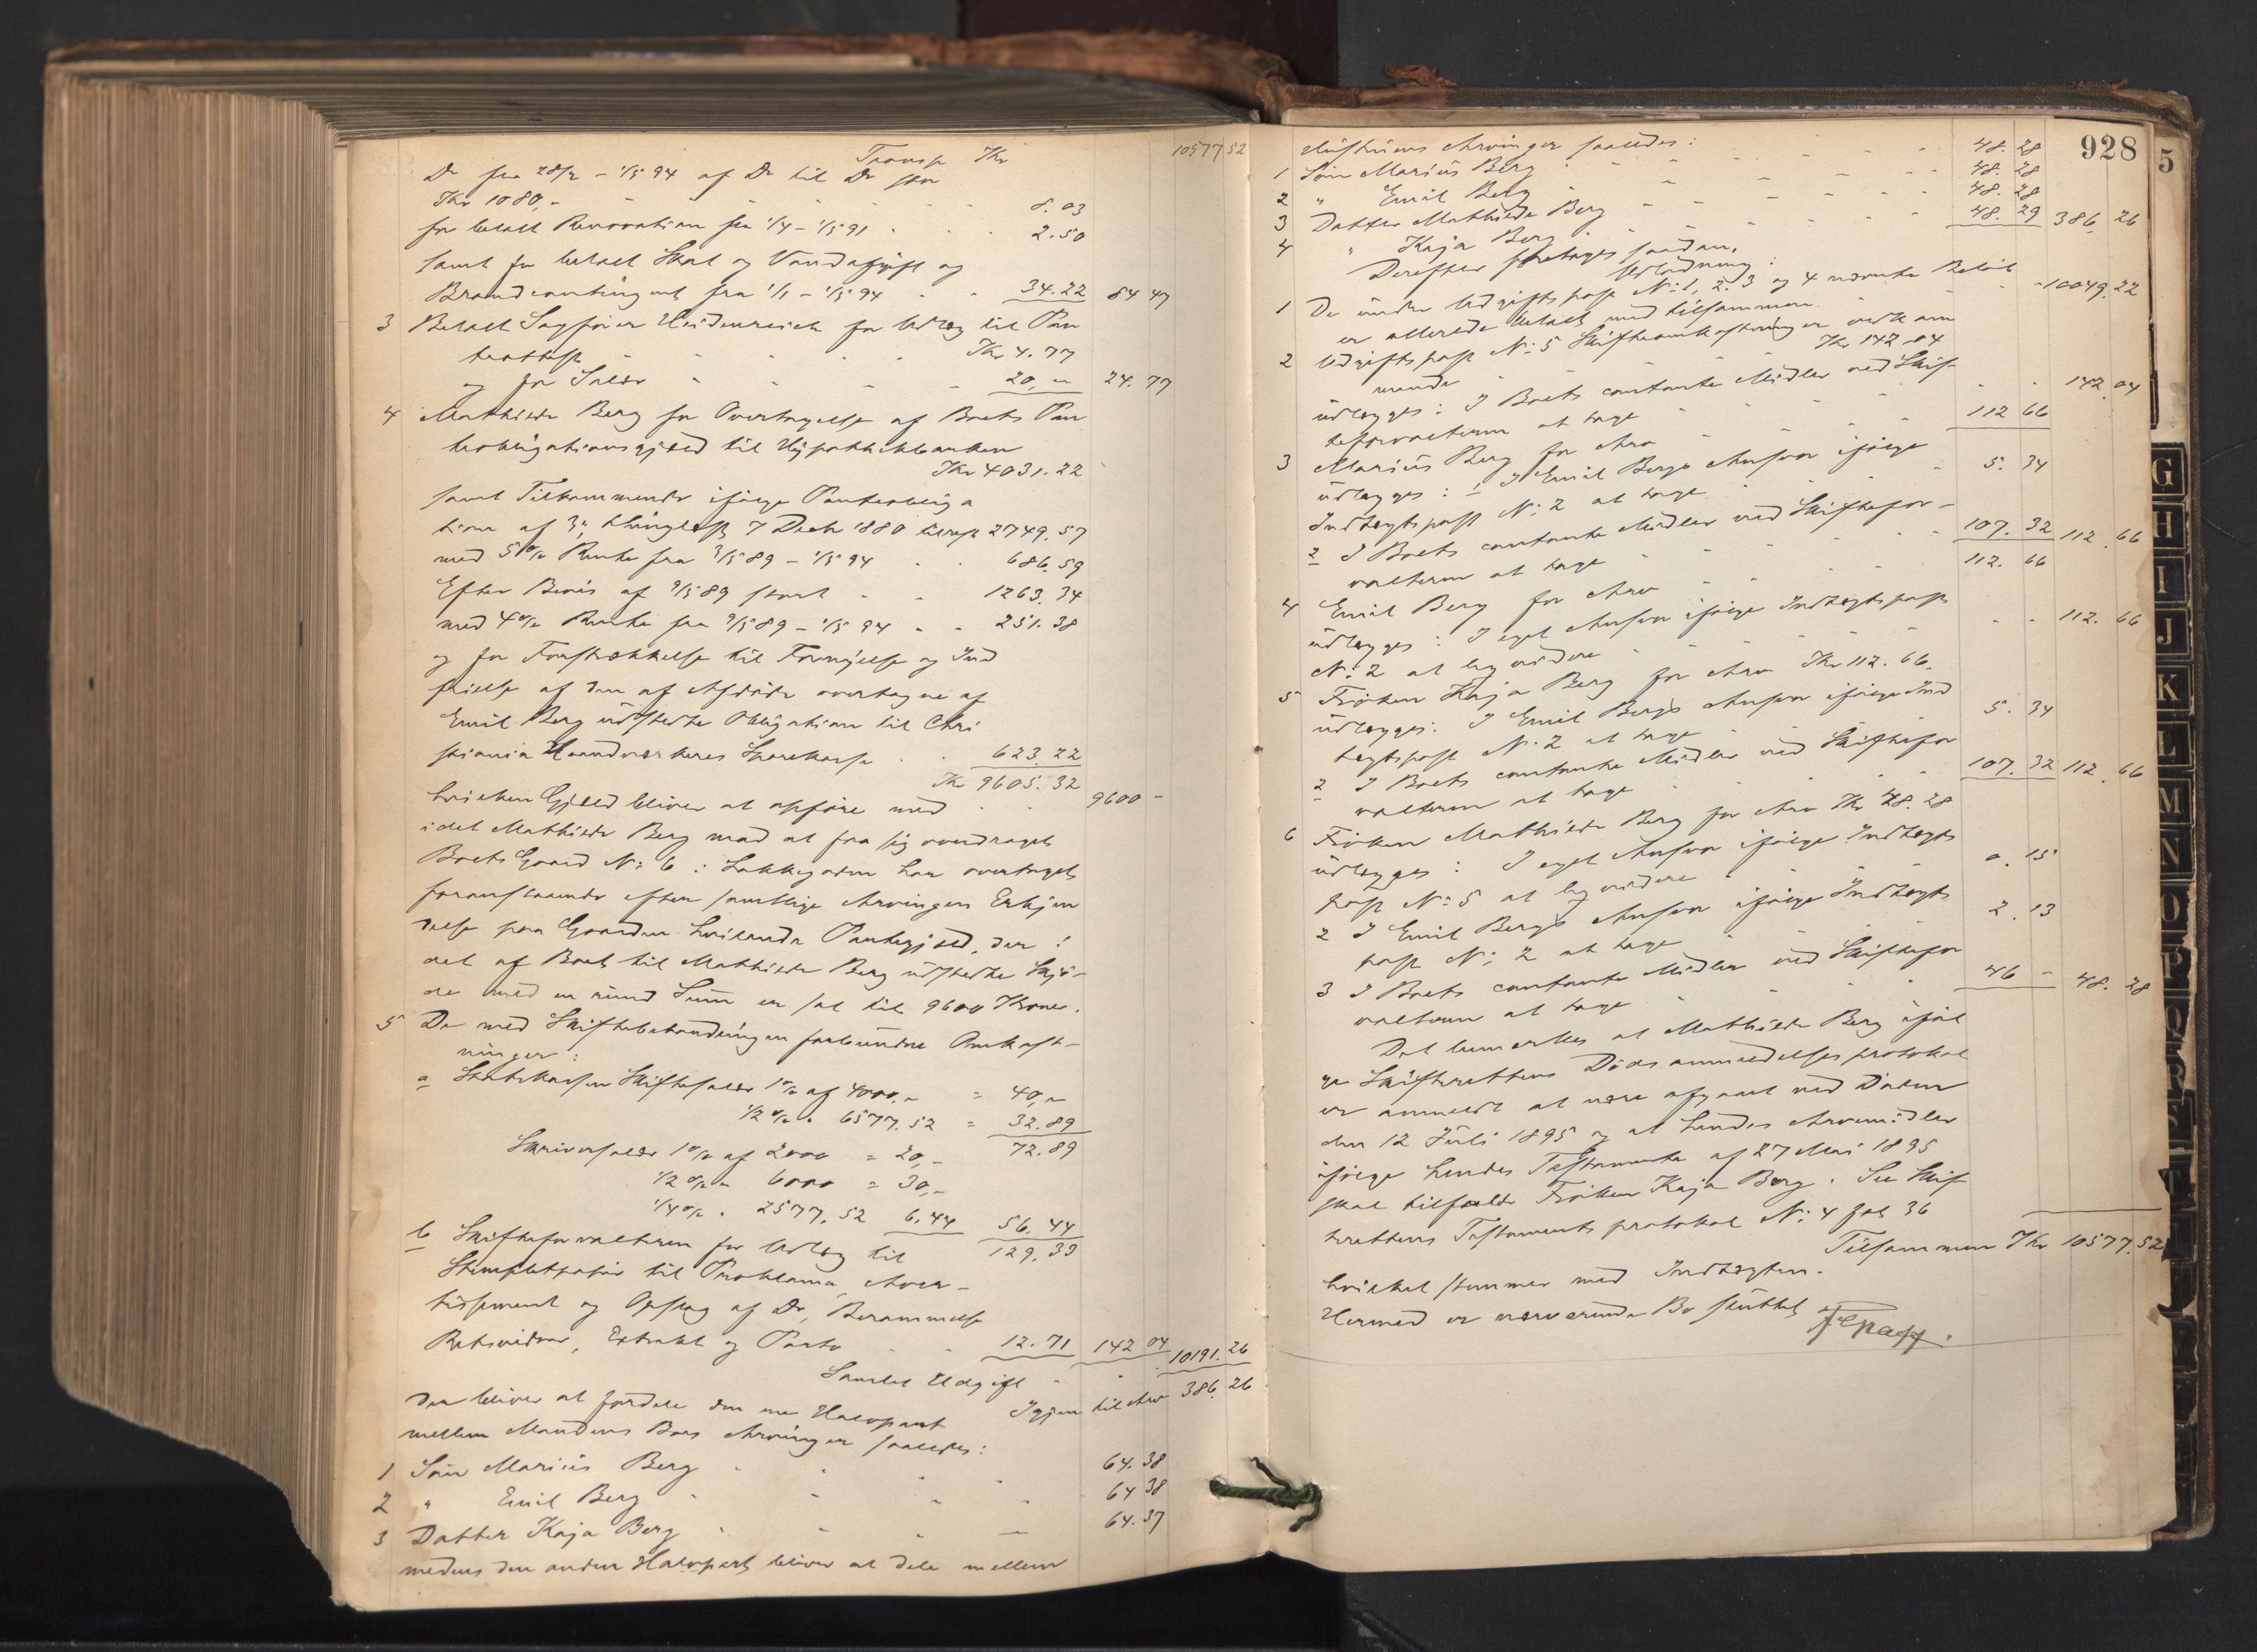 Transp Kr 10577 52
Do fra 28/2 - 1/5 94 af Do til Do stor
Kr 1080,- 8.03
for betalt Renovation fra 1/4 - 1/5 91 2.50
samt for betalt Skat og Vandafgift og
Brandcontingent fra 1/1 - 1/5 94 34.22 84 47
3 Betalt Sagfører Heidenreich for Udlæg til Pan
teattest Kr 4.77
og for Salær 20,- 24.77
4 Mathilde Berg for Overtagelse af Boets Pan
teobligationsgjæld til Hypothekbanken
Kr 4031.22
samt Tilkommende ifølge Panteobliga
tion af 3, thinglæst 7 Decb 1880 tilrest 2749.57
med 5% Rente fra 9/5 89 - 1/5 94 686.59
Efter Bevis af 9/5 89 stort 1263.34
med 4% Rente fra 9/5 89 - 1/5 94 251.38
og for Forstrækkelse til Fornyelse og Ind
frielse af den af Afdøde overtagne af
Emil Berg udstedte Obligation til Chri
stiania Haandværkeres Sparekasse 623.22
Kr 9605.32
hvilken Gjæld bliver at opføre med 9600 -
idet Mathilde Berg mod at faa sig overdraget
Boets Gaard No 6 i Lakkegaden har overtaget
foranstaaende efter samtlige Arvingers Erkjen
delse paa Gaarden hvilende Pantegjæld, der i
det af Boet til Mathilde Berg udstedte Skjø-
de med en rund Sum er sat til 9600 Kroner.
5 De med Skiftebehandlingen forbundne Omkost-
ninger:
a Statskassen Skiftesalær 1% af 4000,- = 40,-
1/2 % " 6577.52 = 32.89
72.89
Skriversalær 1% af 2000 = 20,-
1/2 % " 6000 = 30,-
1/4 % " 2577.52 6.44 56.44
129.33
b Skifteforvalteren for Udlæg til
Stempletpapir til Proklama, Aver-
tissement og Opslag af Do, Berammelse
Retsvidner, Extrakt og Porto 12.71 142 04 10191.26
Samlet Udgift
Igjen til Arv 386.26
der bliver at fordele den ene Halvpart
mellem Mandens Boes Arvinger saaledes:
1 Søn Marius Berg 64.38
2 " Emil Berg 64 38
3 Datter Kaja Berg 64.37
medens den anden Halvpart bliver at dele mellem
928
5
Hustruens Arvinger saaledes:
1 Søn Marius Berg 48.28
2 " Emil Berg 48.28
3 Datter Mathilde Berg 48.28
4 " Kaja Berg 48.29 386.26
Derefter foretages saadan
Udlodning:
1 De under Udgiftspost No 1, 2, 3 og 4 nævnte Beløb
er allerede betalt med tilsammen 10049.22
2 Udgiftspost No 5 Skifteomkostninger vedkom
mende Kr 142.04
udlægges: I Boets contante Midler ved Skif-
teforvalteren at tage 142.04
3 Marius Berg for Arv 112 66
udlægges: 1 I Emil Bergs Ansvar ifølge
Indtægtspost No 2 at tage 5.34
2 I Boets contante Midler ved Skiftefor-
valteren at tage 107.32 112.66
4 Emil Berg for Arv 112.66
udlægges: I eget Ansvar ifølge Indtægtspost
No 2 at liqvidere 112.66
5 Frøken Kaja Berg for Arv Kr 112.66
udlægges: I Emil Bergs Ansvar ifølge Ind
tægtspost No 2 at tage 5.34
2 I Boets contante Midler ved Skiftefor
valteren at tage 107.32 112.66
6 Frøken Mathilde Berg for Arv Kr 48.28
udlægges: I eget Ansvar ifølge Indtægts
post No 5 at liqvidere 0.15
2 I Emil Bergs Ansvar ifølge Indtægts
post No 2 at tage 2.13
3 I Boets contante Midler ved Skiftefor
valteren at tage 46 - 48.28
Det bemærkes at Mathilde Berg iføl
ge Skifterettens Dødsanmeldelsesprotokol
er anmeldt at være afgaaet ved Døden
den 12 Juli 1895 og at hendes Arvemidler
ifølge hendes Testamente af 27 Mai 1895
skal tilfalde Frøken Kaja Berg. Se Skif
terettens Testamentsprotokol No 4 fol 36
Tilsammen Kr 10577.52
hvilket stemmer med Indtægten.
Hermed er nærværende Bo sluttet
G
H
I
J
K
L
M
N
O
P
Q
R
S
T